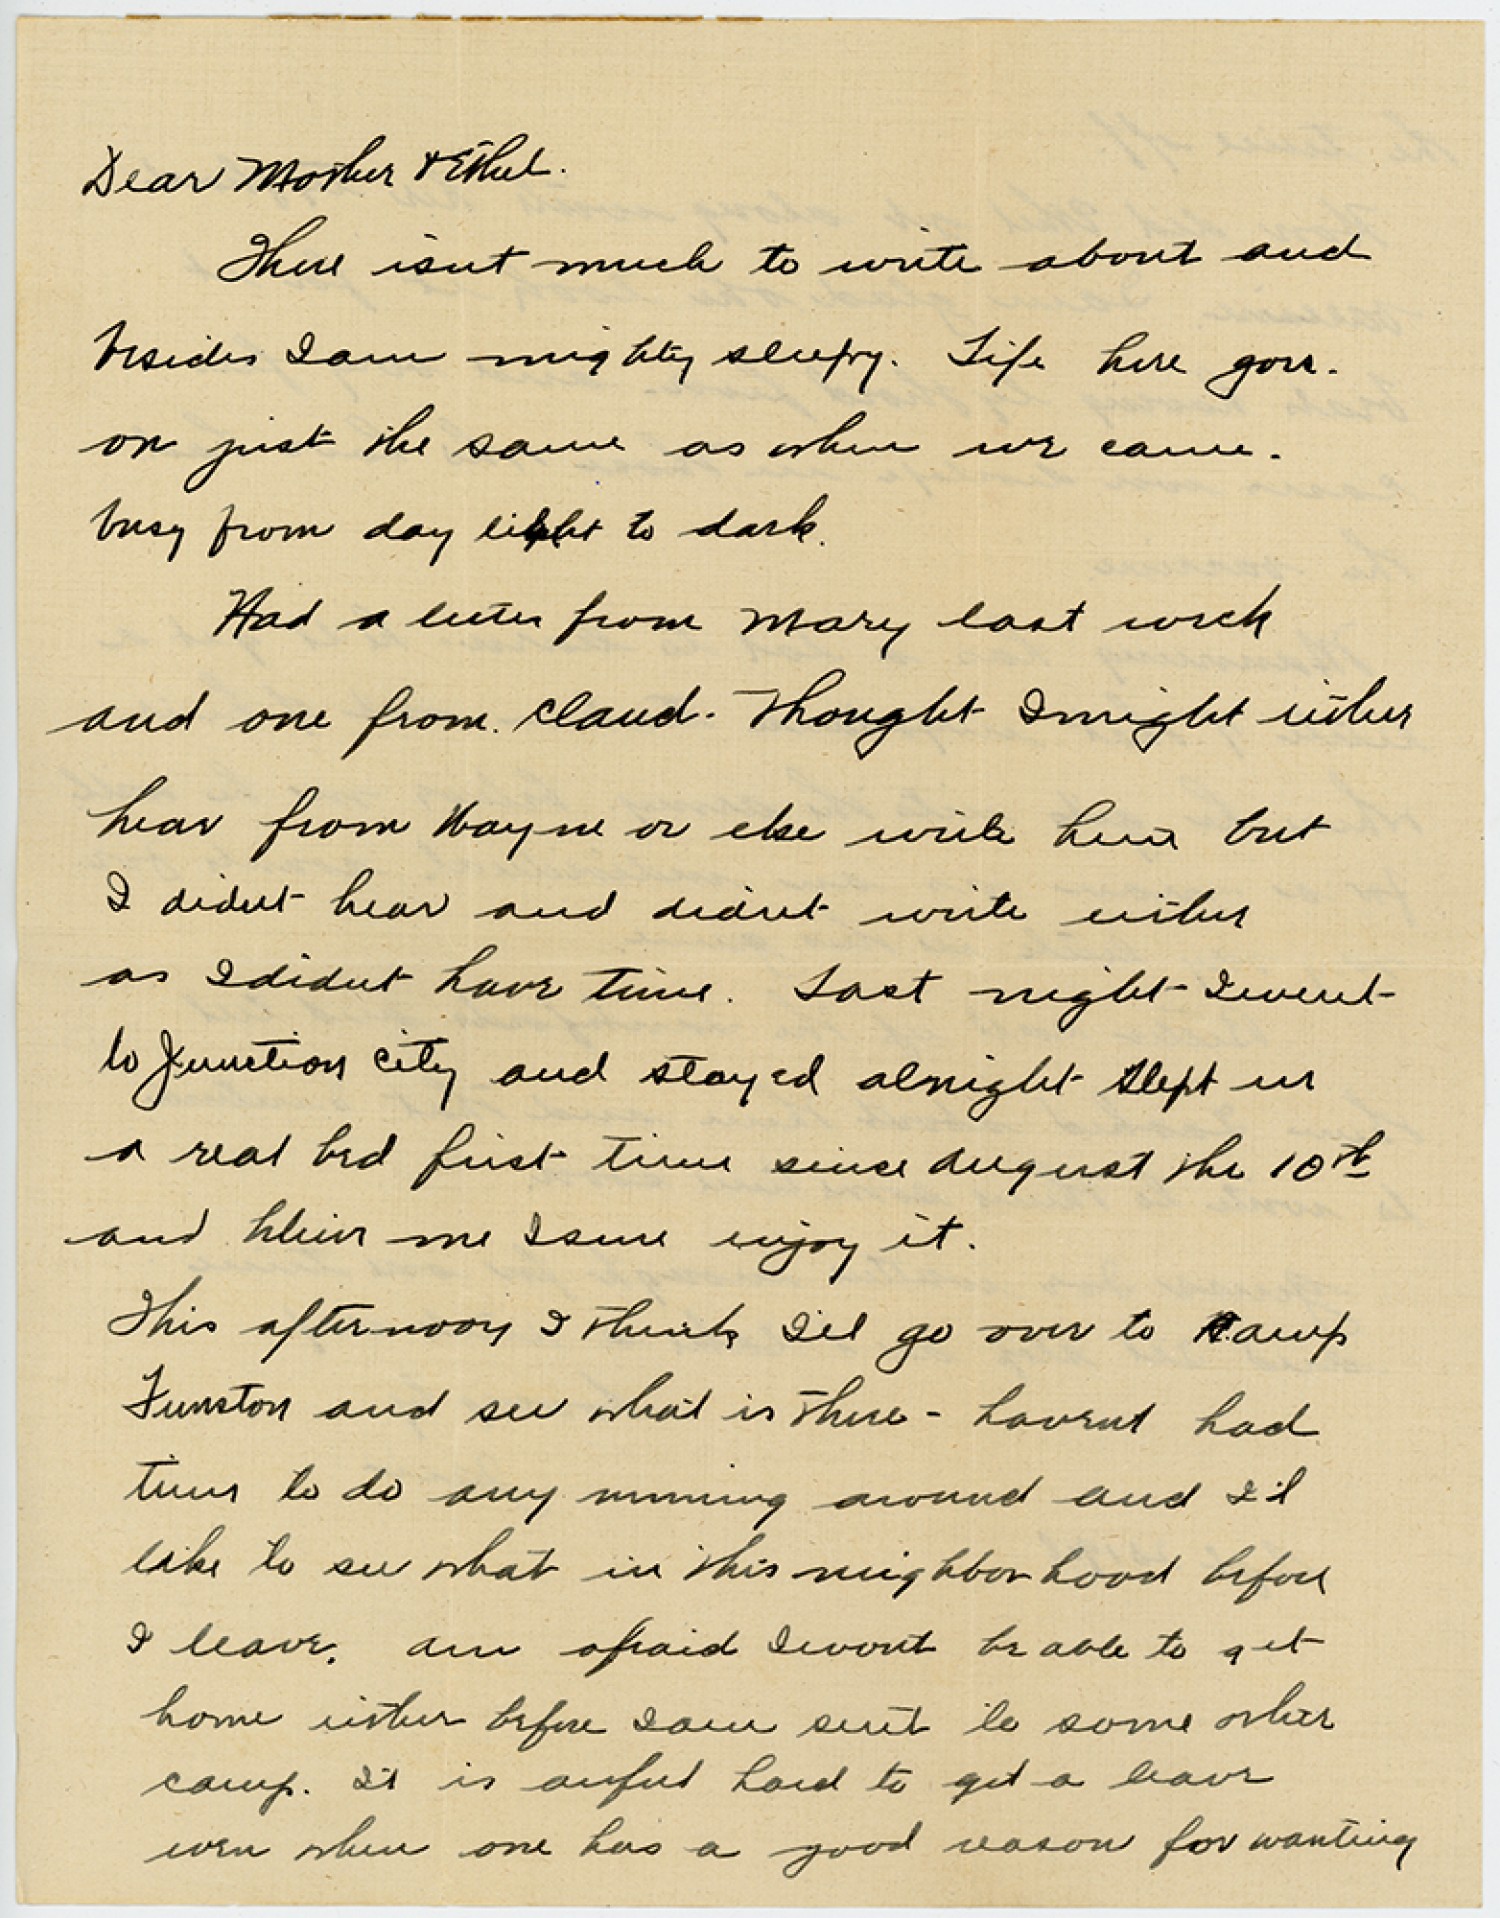 Dear Mother & Ethel.
There isnt much to write about and
besides I am mighty sleepy. Life here goes.
on just the same as when we came.
busy from day light to dark.
Had a letter from Mary last week
and one from. Claud. Thought I might either
hear from Wayne or else write him but
I didnt hear and didnt write either
as I didnt have time. Last night I went
to Junction City and stayed alnight slept in
a real bed first time since August the 10th
and bleive me I sure enjoy it.
This afternoon I think I'll go over to Camp
Funston and see what is there - havent had
time to do any running around and I'd
like to see what in this neighbor hood before
I leave. am afraid I wont be able to get
home either before I am sent to some other
camp. It is awful hard to get a leave
even when one has a good reason for wanting